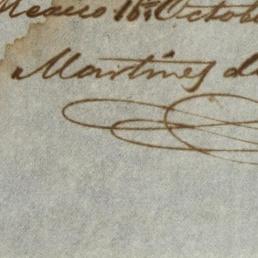 Mexico 16. Octob
Martines d